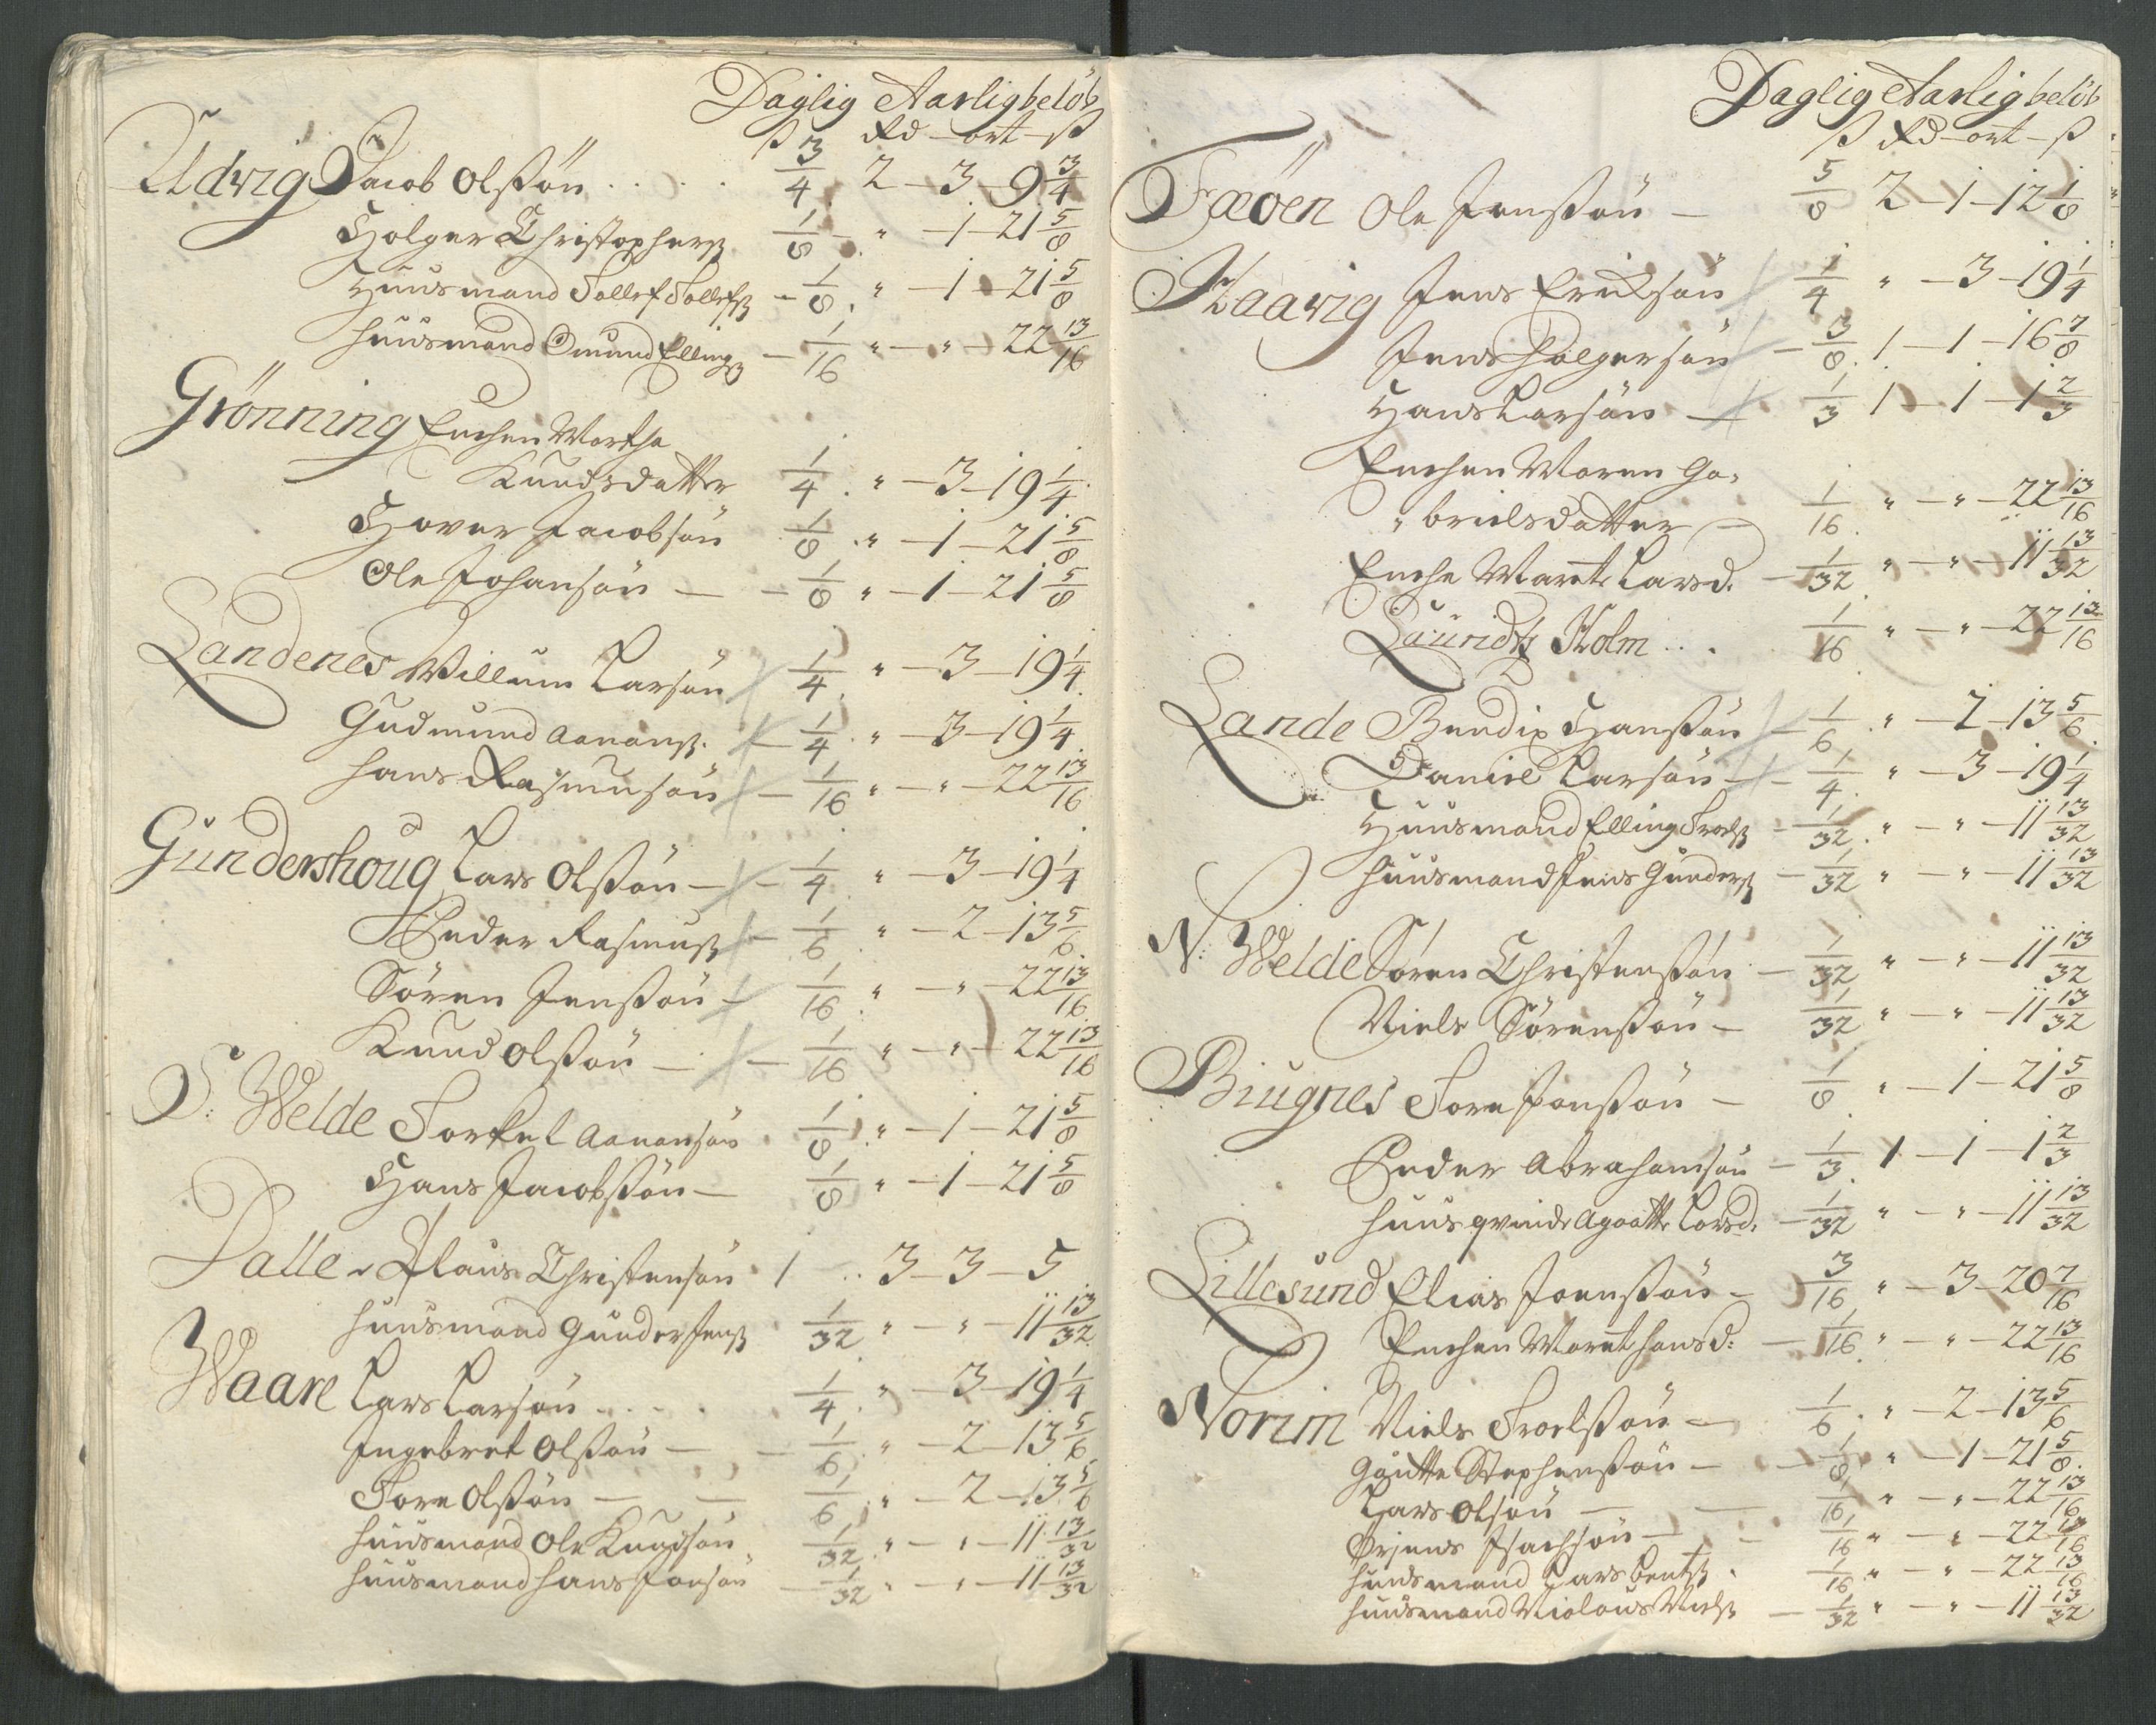 Daglig Aarlig beløb
ß Rd – ort – ß
Udvig Jacob Olssøn . . . . 3/4 2 – 3 – 9 3/4
Holger Christophersß 1/8 – " – 1 – 21 5/8
Huusmand Tollef Tollefsß – 1/8 . " – 1 – 21 5/8
huusmand Omund Ellingß – 1/16 " – " – 22 13/16
Grönning Enchen Martha
Knudsdatter 1/4 . " – 3 – 19 1/4
Hover Jacobsøn 1/8 . " – 1 – 21 5/8
Ole Johansøn – – 1/8 " – 1 – 21 5/8
Landenes Willum Larsøn 1/4 " – 3 – 19 1/4
Gudmund Aanonß. – 1/4 . " – 3 – 19 1/4
hans Rasmusøn – 1/16 " – " – 22 13/16
Gundershoug Lars Olssøn – – 1/4 " – 3 – 19 1/4
Peder Rasmusß – 1/6 " – 2 – 13 5/6
Søren Jenssøn – 1/16 . " – " – 22 13/16
Knud Olssøn – – 1/16 " – " – 22 13/16
S: Welde Torkel Aanonsøn 1/8 . " – 1 – 21 5/8
Hans Jacobssøn – 1/8 " – 1 – 21 5/8
Dalle Claus Christensøn 1 . . 3 – 3 – 5
huusmand Gunder Jensß 1/32 " – " – 11 13/32
Waare Lars Larsøn . . . . 1/4 . " – 3 – 19 1/4
Ingebret Olssøn – – 1/6 . " – 2 – 13 5/6
Tore Olssøn – – 1/6 . " – 2 – 13 5/6
huusmand Ole Knudsøn 1/32 . " – " – 11 13/32
huusmand hans Jonsøn – 1/32 " – " – 11 13/32
Daglig Aarlig beløb
ß Rd – ort – ß
Fæöen Ole Jonssøn – 5/8 2 – 1 – 12 1/8
Haavig Jens Eriksøn 1/4 " – 3 – 19 1/4
Jens Holgersøn – 3/8 . 1 – 1 – 16 7/8
Hans Larsøn – 1/3 1 – 1 – 1 2/3
Enchen Maren Ga-
" brielsdatter – 1/16 . " – " – 22 13/16
Enche Marete Larsd. – 1/32 " – " – 11 13/32
Lauridtz Holm . . . 1/16 " – " – 22 13/16
Lande Bendix Hanssøn – 1/6 . " – 2 – 13 5/6
Daniel Larsøn – – 1/4 . " – 3 – 19 1/4
Huusmand Elling Troelsß – 1/32 . " – " – 11 13/32
huusmand Jens Gundersß – 1/32 " – " – 11 13/32
N: Welde Søren Christenssøn – 1/32 " – " – 11 13/32
Niels Sørenssøn – 1/32 " – " – 11 13/32
Biugnes Tore Jonssøn – 1/8 " – 1 – 21 5/8
Peder Abrahamsøn – 1/3 . 1 – 1 – 1 2/3
huusqvinde Agaatte Larsd. – 1/32 " – " – 11 13/32
Lillesund Elias Joenssøn – 3/16 " – 3 – 20 7/16
Enchen Maret hansd: – 1/16 . " – " – 22 13/16
Norim Niels Troelssøn – 1/6 . " – 2 – 13 5/6
Gautte Stephenssøn – – 1/8 " – 1 – 21 5/8
Lars Olsøn – – 1/16 " – " – 22 13/16
Ørjens Isachsøn – – 1/16 " – " – 22 13/16
huusmand Lars Bentsß . 1/16 " – " – 22 13/16
huusmand Niolaus Nielsß – 1/32 " – " – 11 13/32